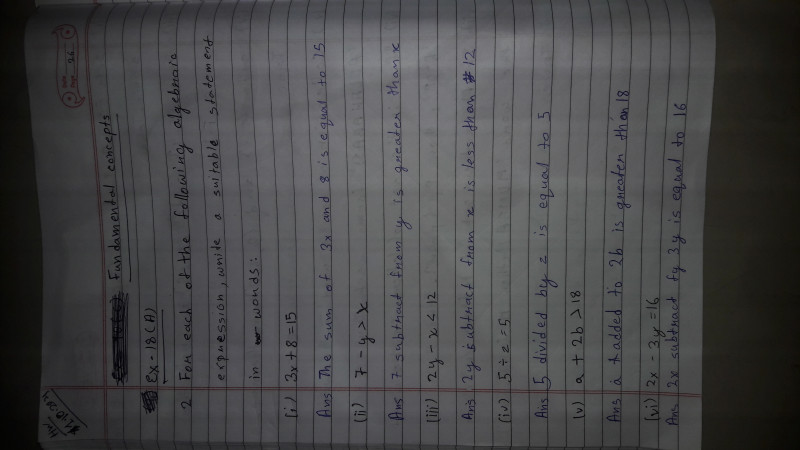 Fundamental concepts
Ex-18(A)
2 For each of the following algebraic
expression, write a suitable statement
in words:
(i) 3x + 8 = 15
Ans The sum of 3x and 8 is equal to 15
(ii) 7 - y > x
Ans 7 subtract from y is greater than x
(iii) 2y - x < 12
Ans 2y subtract from x is less than 12
(iv) 5 ÷ z = 5
Ans 5 divided by z is equal to 5
(v) a + 2b > 18
Ans a added to 2b is greater than 18
(vi) 2x - 3y = 16
Ans 2x subtract fy 3y is equal to 16